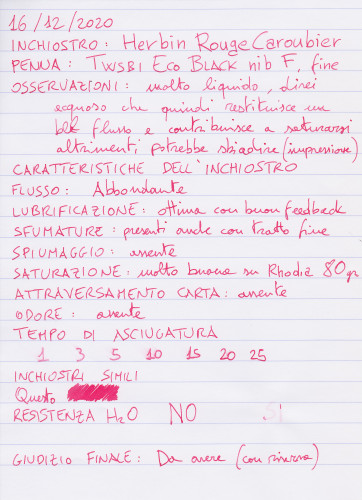 16/12/2020
INCHIOSTRO: Herbin Rouge Caroubier
PENNA: TWSBI ECO BLACK nib F, fine
OSSERVAZIONI: molto liquido, direi
acquoso che quindi restituisce un
bel flusso e contribuisce a saturarsi
altrimenti potrebbe sbiadire (impressione)
CARATTERISTICHE DELL'INCHIOSTRO
FLUSSO: Abbondante
LUBRIFICAZIONE: ottima con buon feedback
SFUMATURE: presenti anche con tratto fine
SPIUMAGGIO: assente
SATURAZIONE: molto buona su Rhodia 80gr
ATTRAVERSAMENTO CARTA: assente
ODORE: assente
TEMPO DI ASCIUGATURA
1 3 5 10 15 20 25
INCHIOSTRI SIMILI
Questo
RESISTENZA H2O NO SI
GIUDIZIO FINALE: Da avere (con riserva)